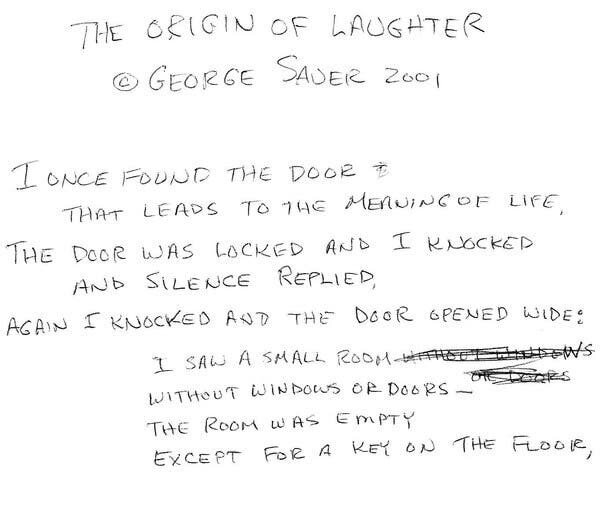 THE ORIGIN OF LAUGHTER
© GEORGE SAUER 2001
I ONCE FOUND THE DOOR
THAT LEADS TO THE MEANING OF LIFE,
THE DOOR WAS LOCKED AND I KNOCKED
AND SILENCE REPLIED,
AGAIN I KNOCKED AND THE DOOR OPENED WIDE:
I SAW A SMALL ROOM WITHOUT WINDOWS
OR DOORS
WITHOUT WINDOWS OR DOORS —
THE ROOM WAS EMPTY
EXCEPT FOR A KEY ON THE FLOOR,